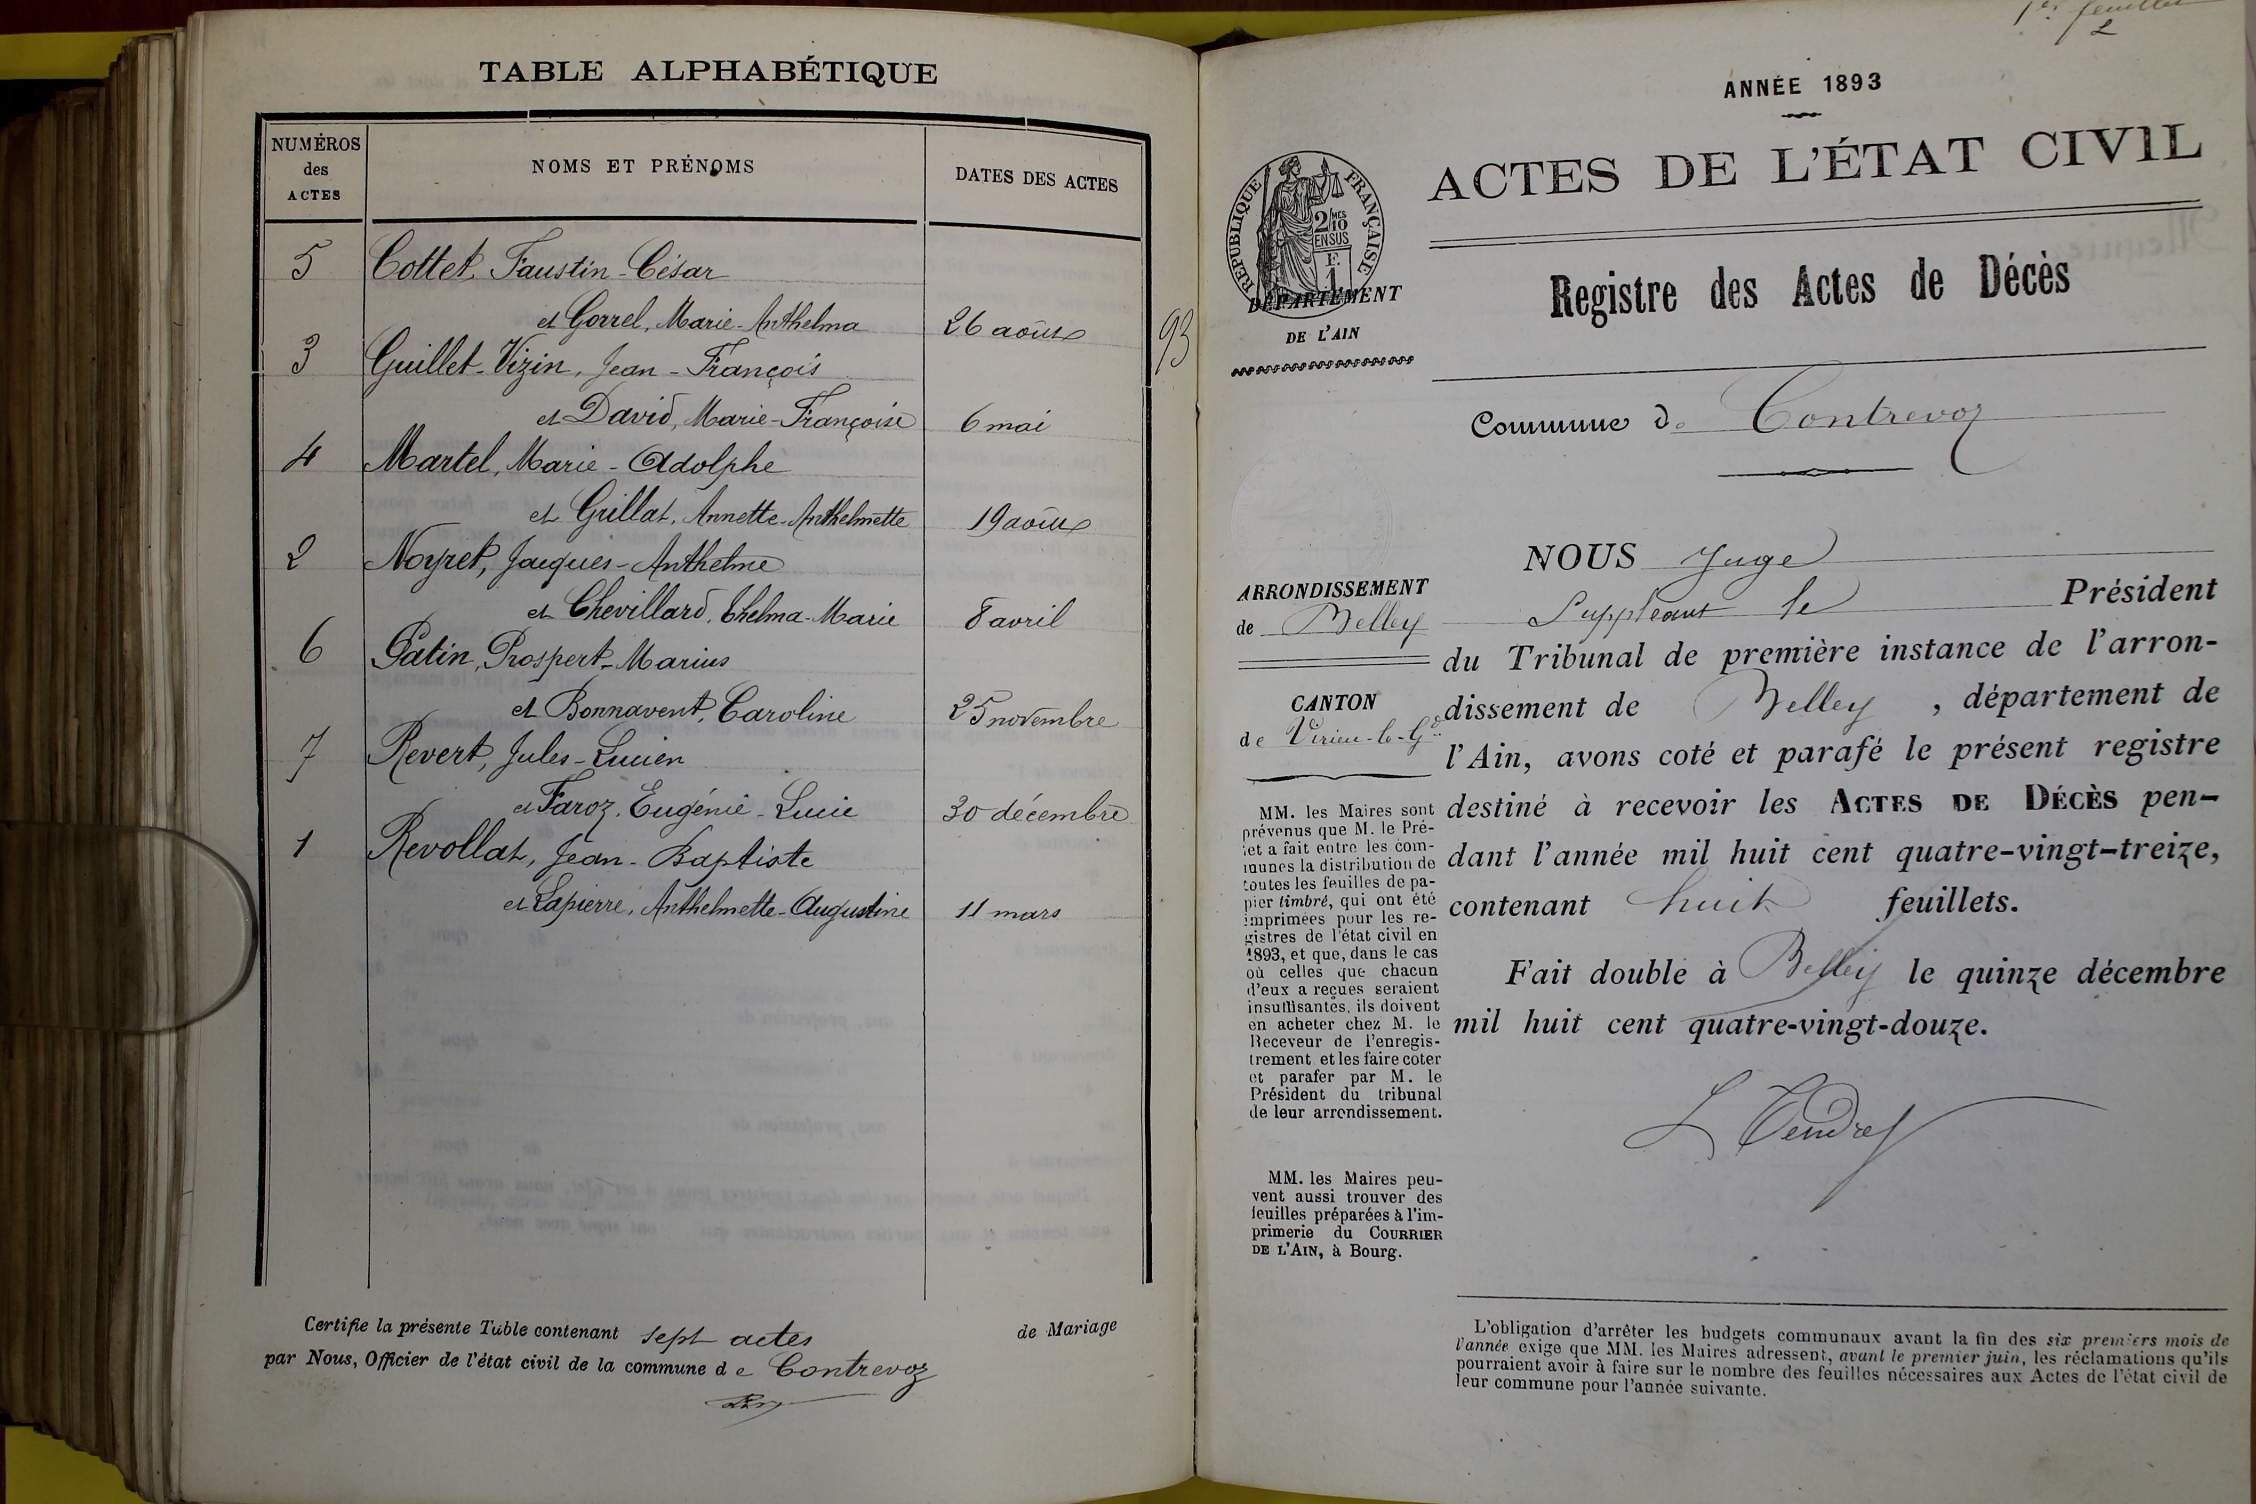 TABLE ALPHABÉTIQUE
NUMÉROS des ACTES
NOMS ET PRÉNOMS
DATES DES ACTES
5 Cottet, Faustin-César
et Gorrel, Marie-Anthelma 26 août
3 Guillet-Vizin, Jean-François
et David, Marie-Françoise 6 mai
4 Martel, Marie-Adolphe
et Grillat, Annette-Anthelmette 19 août
2 Noyret, Jacques-Anthelme
et Chevillard, Thelma-Marie 8 avril
6 Patin, Prospert-Marius
et Bonnavent, Caroline 25 novembre
7 Revert, Jules-Lucien
et Faroz, Eugénie-Lucie 30 décembre
1 Revollat, Jean-Baptiste
et Lapierre, Anthelmette-Augustine 11 mars
Certifie la présente Table contenant sept actes de Mariage
par Nous, Officier de l'état civil de la commune de Contrevoz
93
1er feuillet
2
ANNÉE 1893
ACTES DE L'ÉTAT CIVIL
RÉPUBLIQUE FRANÇAISE
2/10 MES
EN SUS
1 F.
DÉPARTEMENT
DE L'AIN
Registre des Actes de Décès
Commune de Contrevoz
ARRONDISSEMENT
de Belley
CANTON
de Virieu-le-Gd
MM. les Maires sont
prévenus que M. le Pré-
fet a fait entre les com-
munes la distribution de
toutes les feuilles de pa-
pier timbré, qui ont été
imprimées pour les re-
gistres de l'état civil en
1893, et que, dans le cas
où celles que chacun
d'eux a reçues seraient
insuffisantes, ils doivent
en acheter chez M. le
Receveur de l'enregis-
trement et les faire coter
et parafer par M. le
Président du tribunal
de leur arrondissement.
MM. les Maires peu-
vent aussi trouver des
feuilles préparées à l'im-
primerie du COURRIER
DE L'AIN, à Bourg.
NOUS Juge
Suppléant le Président
du Tribunal de première instance de l'arron-
dissement de Belley, département de
l'Ain, avons coté et parafé le présent registre
destiné à recevoir les ACTES DE DÉCÈS pen-
dant l'année mil huit cent quatre-vingt-treize,
contenant huit feuillets.
Fait double à Belley le quinze décembre
mil huit cent quatre-vingt-douze.
L Tendret
L'obligation d'arrêter les budgets communaux avant la fin des six premiers mois de
l'année exige que MM. les Maires adressent, avant le premier juin, les réclamations qu'ils
pourraient avoir à faire sur le nombre des feuilles nécessaires aux Actes de l'état civil de
leur commune pour l'année suivante.